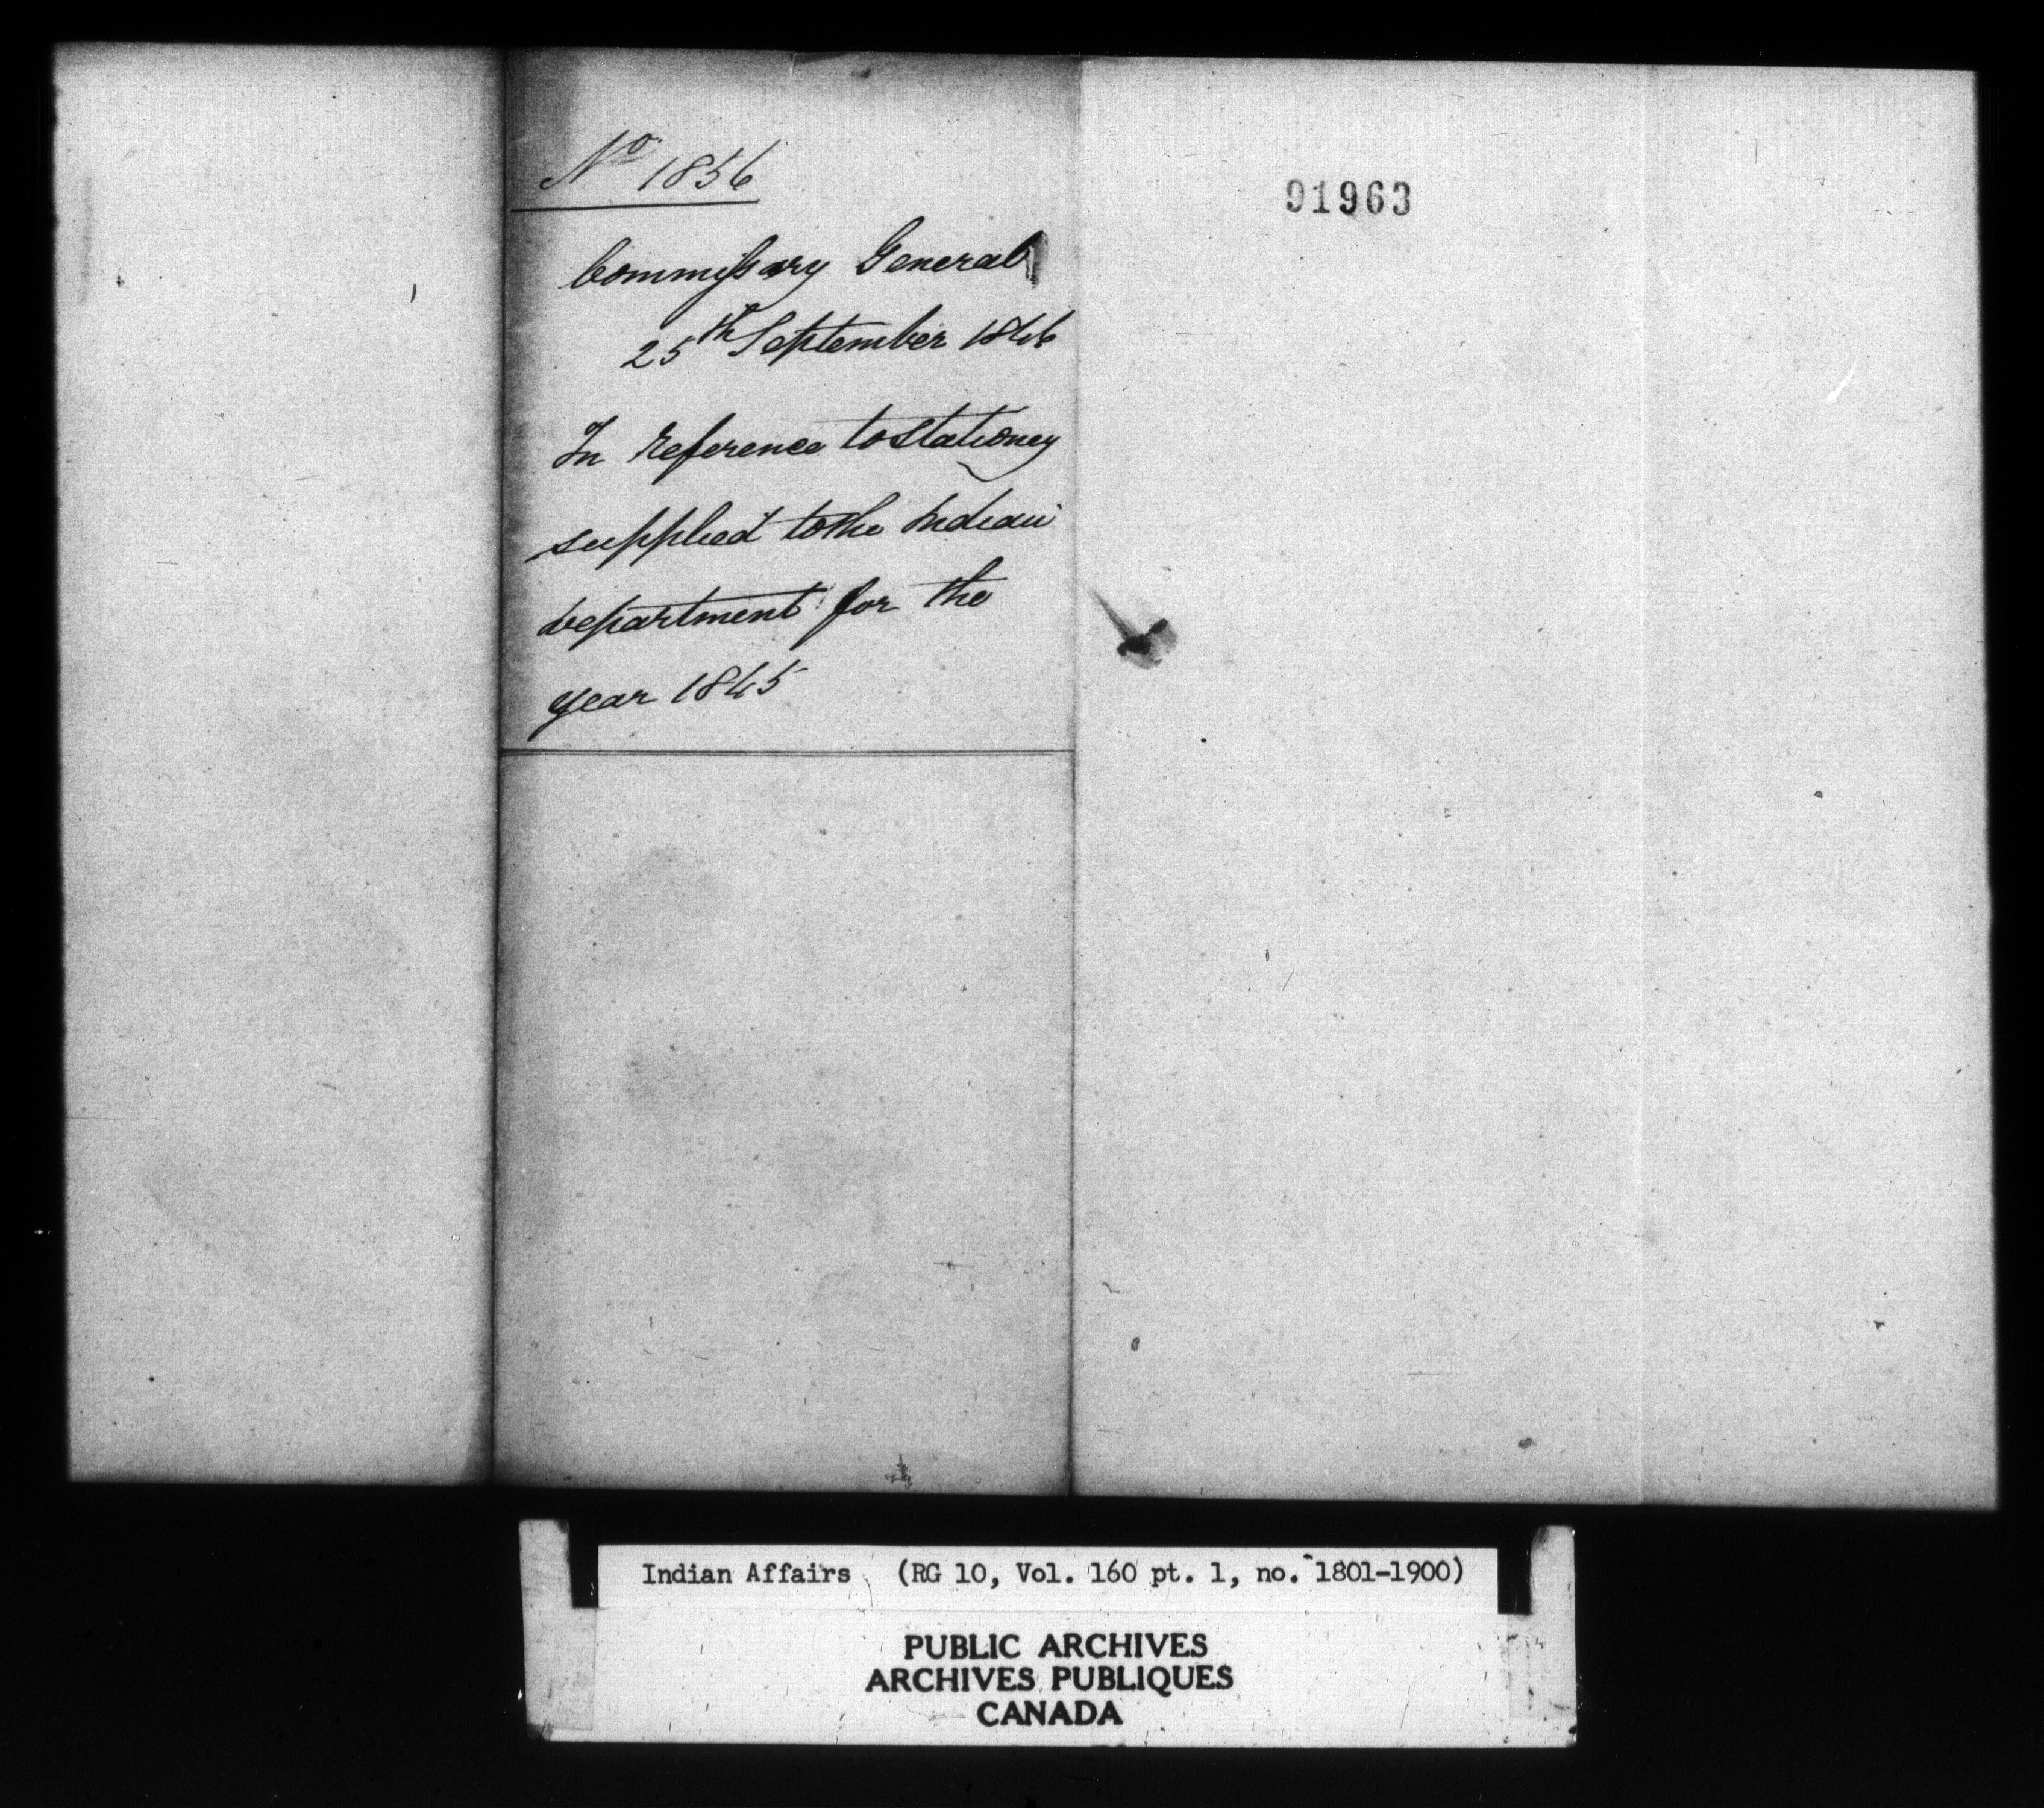 No 1856
Commissary General
25th September 1846
In reference to stationey
supplied to the Indian
department for the
year 1845
91963
Indian Affairs (RG 10, Vol. 160 pt. 1, no. 1801-1900)
PUBLIC ARCHIVES
ARCHIVES PUBLIQUES
CANADA